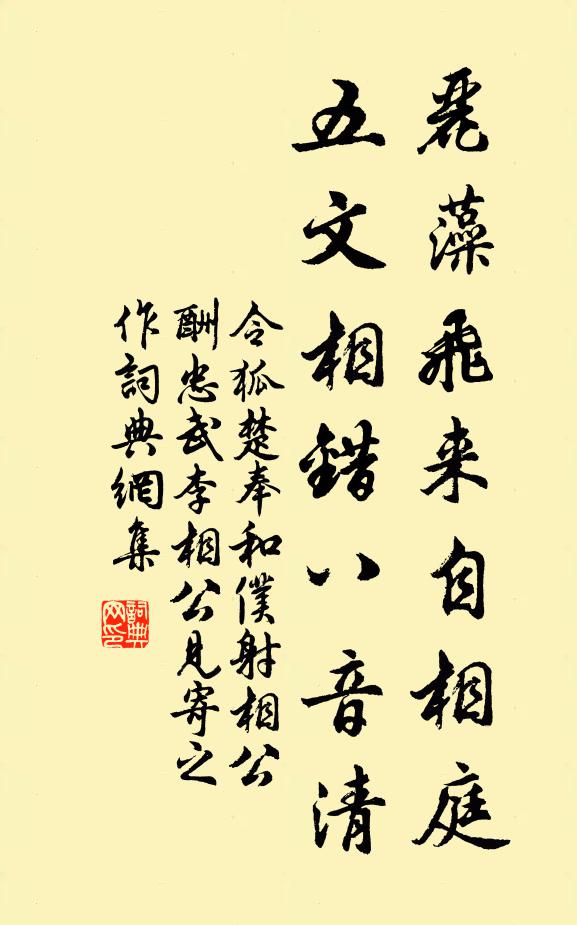 麗藻飛来自相庭
五文相錯八音清
令狐楚奉和僕射相公
酬忠武李相公見寄之
作詞典網集
詞典网印